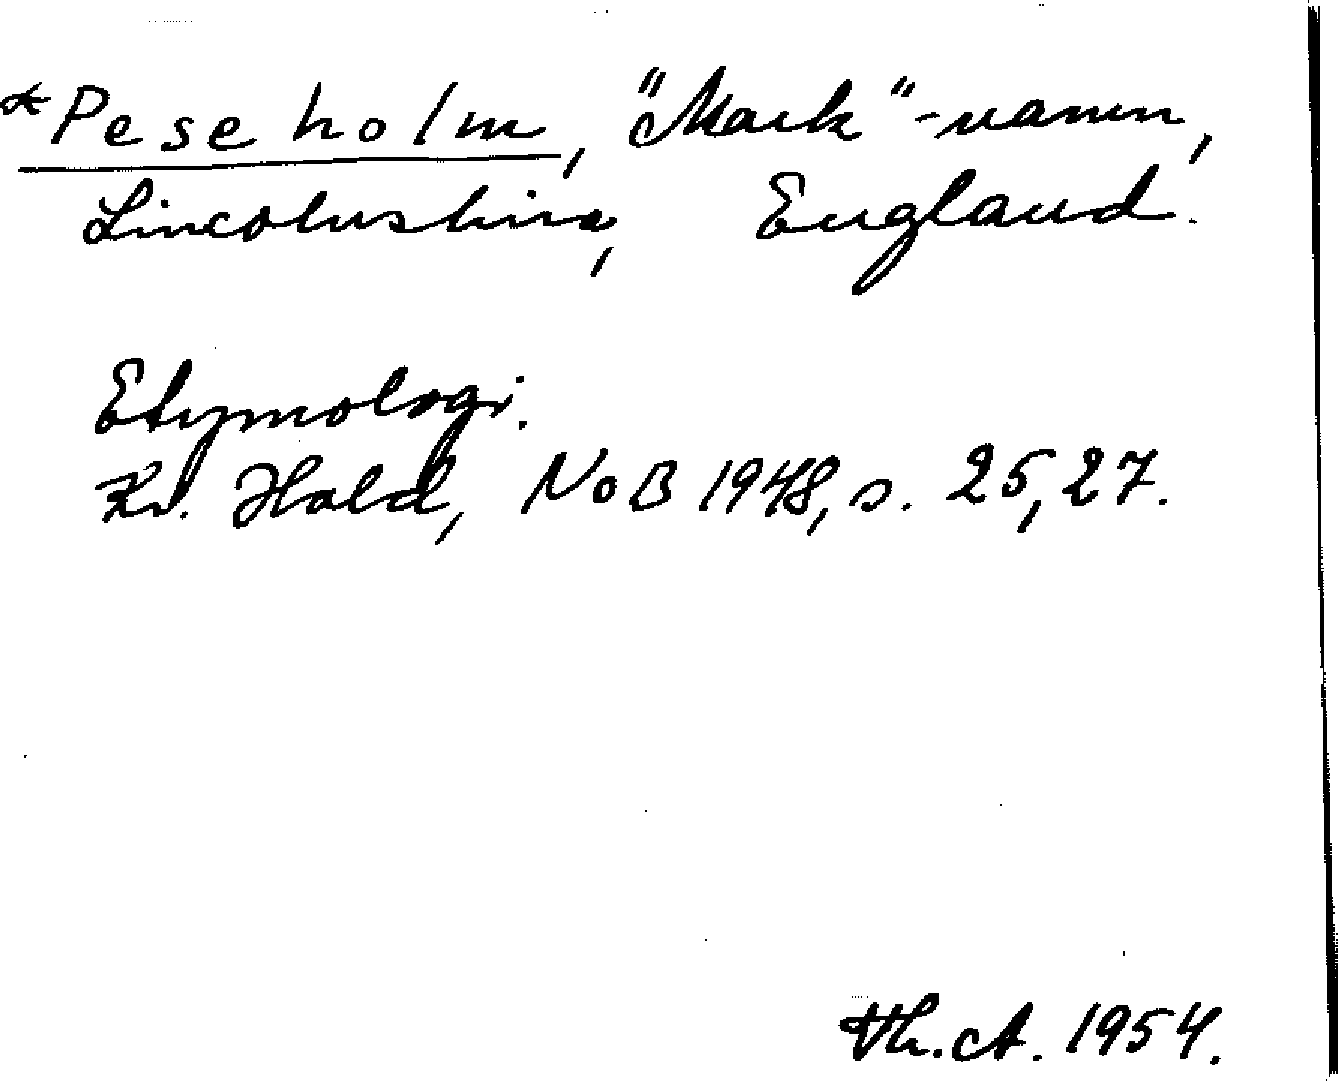 *Peseholm, "Mark"-namn,
Lincolnshire, England.
Etymologi.
Kr. Hald, NoB 1948, s. 25, 27.
Th. A. 1954.